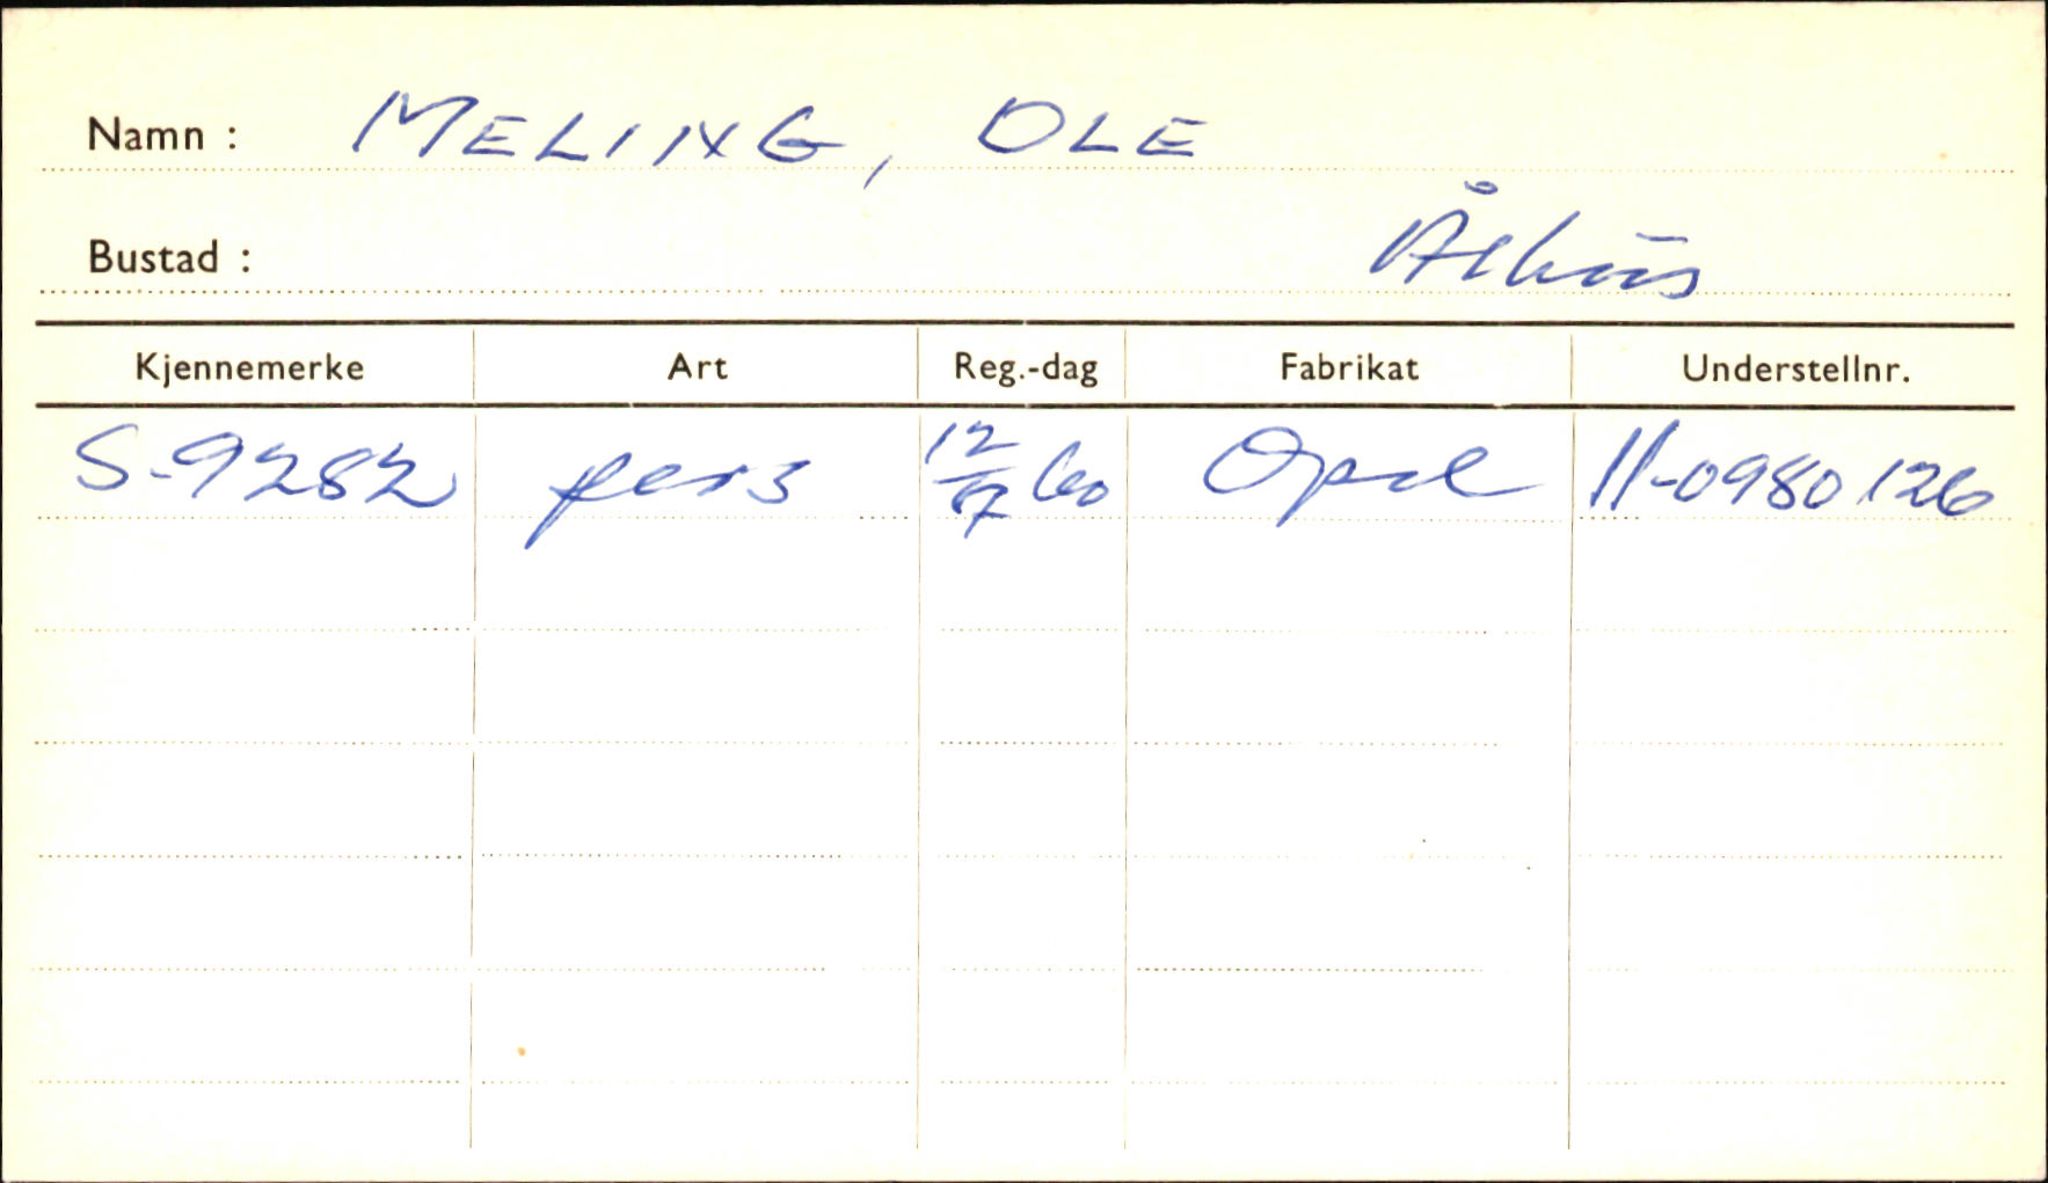 Namn : MELING, OLE
Bustad : Århus
Kjennemerke Art Reg.-dag Fabrikat Understellnr.
S-9282 pers 12/07 60 Opel 11-0980126